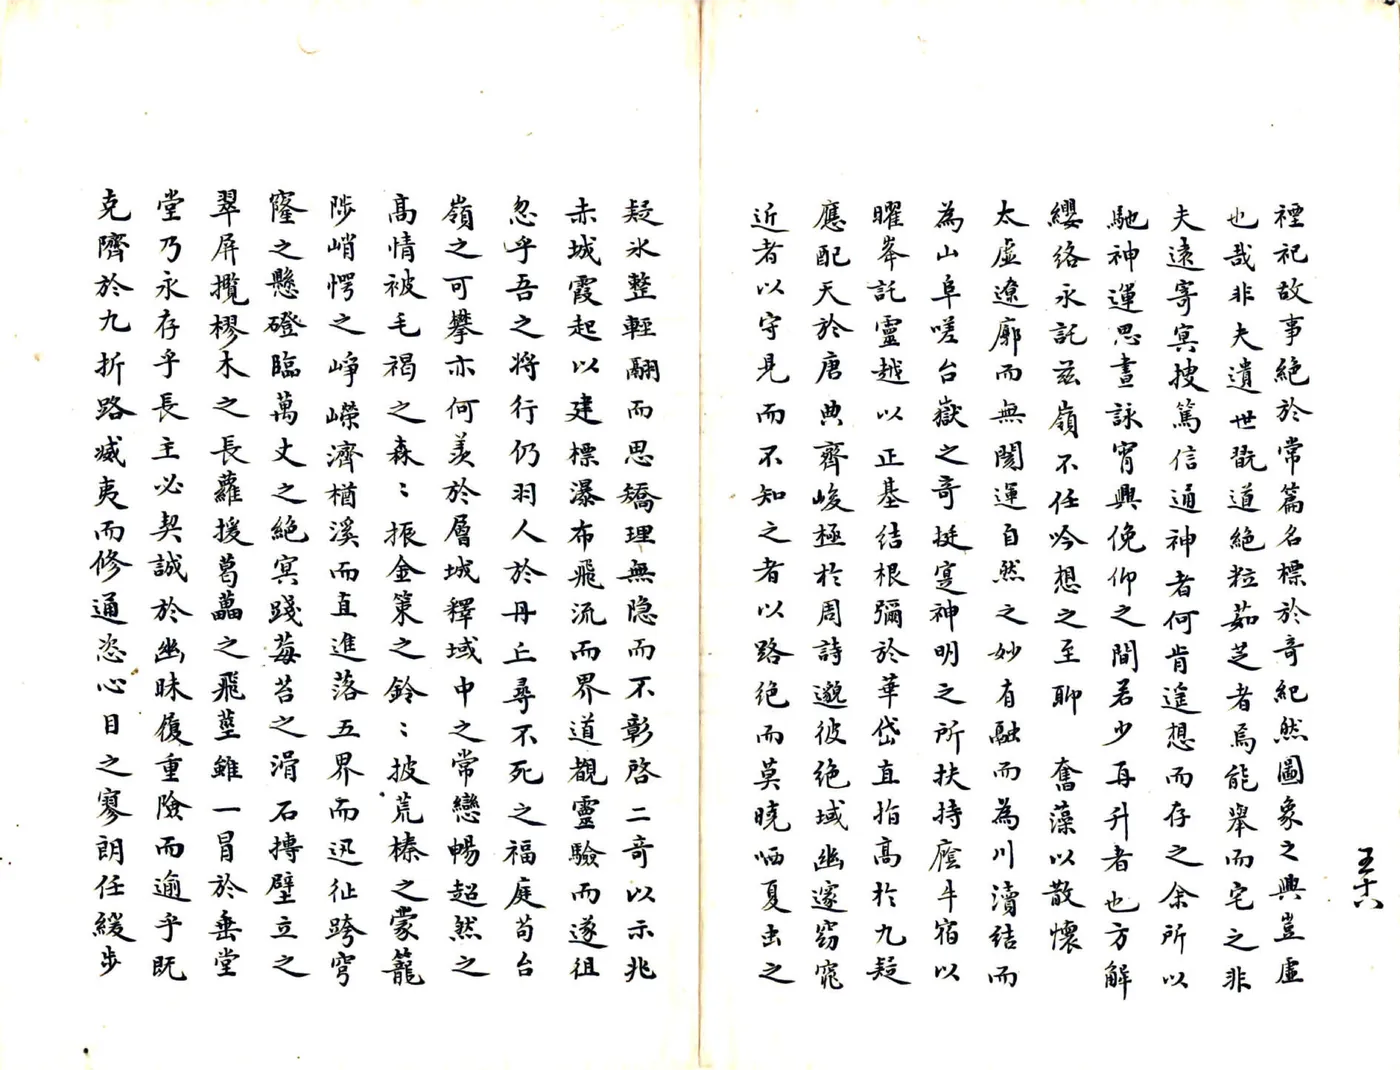 禋祀故事絶於常篇名標於竒紀然圖象之興豈虛
也哉非夫遺世翫道絶粒茹芝者焉能舉而宅之非
夫遠寄冥搜篤信通神者何肯遥想而存之余所以
馳神運思晝詠宵興俛仰之間若少再升者也方解
纓络永託兹嶺不任吟想之至聊　奮藻以散懷
太虛遼廓而無閡運自然之妙有融而為川瀆结而
為山阜嗟台嶽之竒挺寔神明之所扶持廕牛宿以
曜峯託靈越以正基结根彌於華岱直指高於九疑
應配天於唐典齊峻極於周詩邈彼绝域幽邃窈窕
近者以守見而不知之者以路绝而莫曉哂夏虫之
疑氷整輕翮而思矯理無隐而不彰啓二竒以示兆
赤城霞起以建標瀑布飛流而界道覩靈驗而遂徂
忽乎吾之將行仍羽人於丹丘尋不死之福庭苟台
嶺之可攀亦何羡於層城釋域中之常戀暢超然之
高情被毛褐之森〻振金策之鈴〻披荒榛之蒙籠
陟峭愕之崢嶸濟楢溪而直進落五界而迅征跨穹
窿之懸磴臨萬丈之絶冥踐莓苔之滑石摶壁立之
翠屏攬樛木之長蘿援葛藟之飛莖雖一冒於垂堂
堂乃永存乎長主必契誠於幽昧履重險而逾乎既
克隮於九折路威夷而修通恣心目之寥朗任緩步
五十六